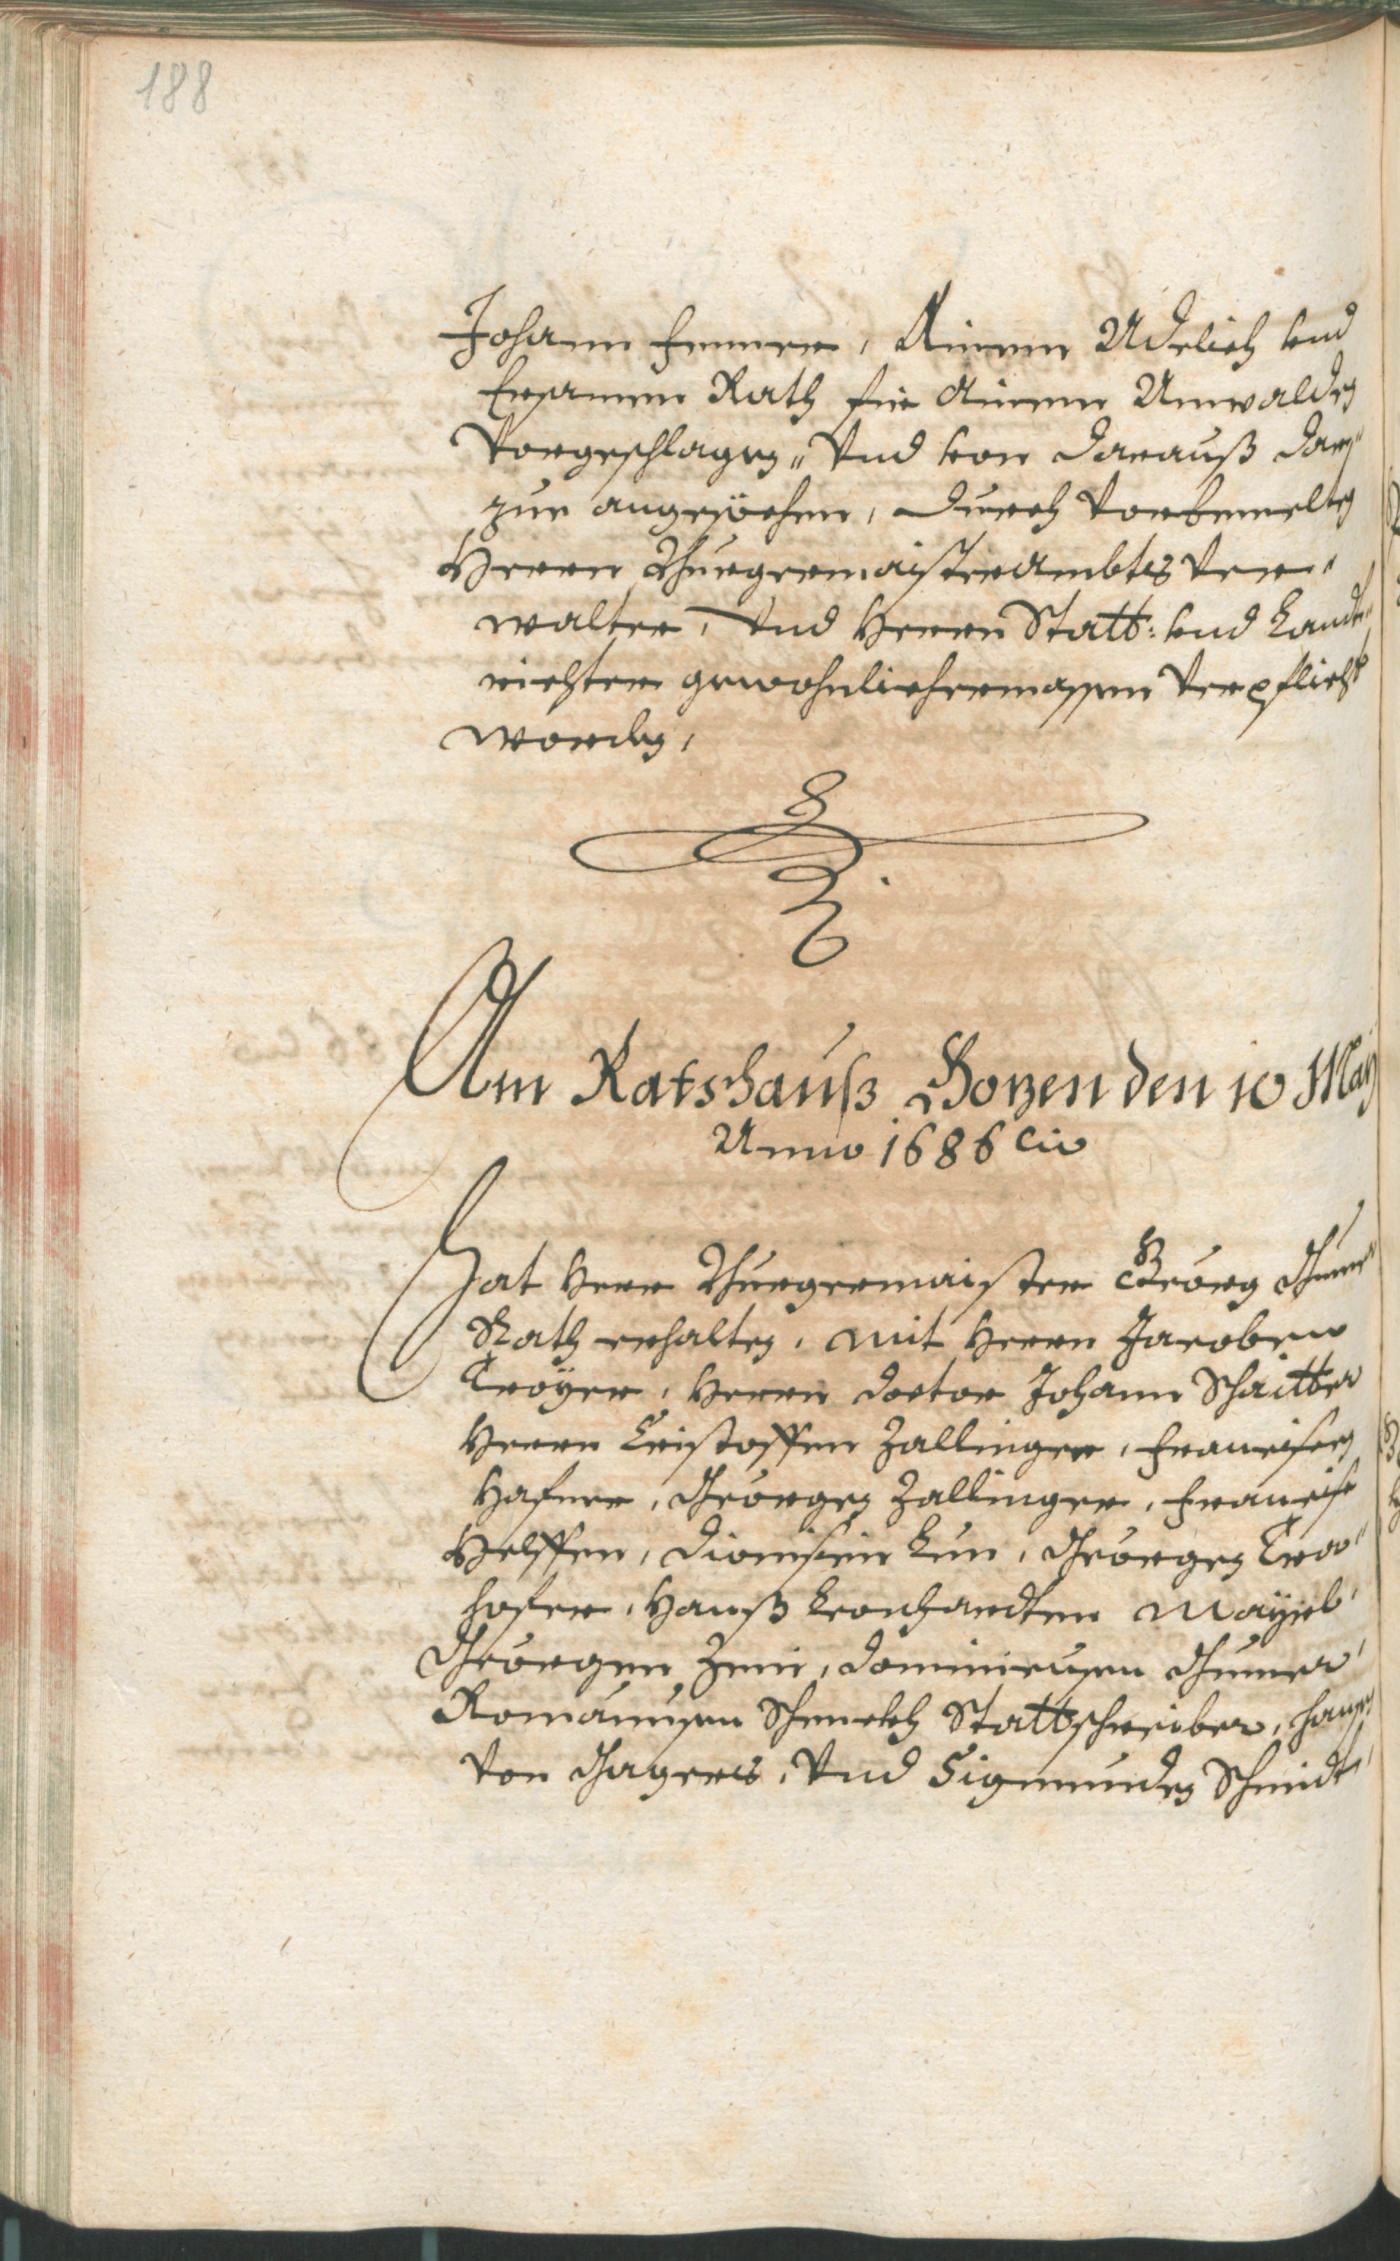 188
Johann Hueber, Ainem Adelich und
Ersamen Rath für Ainen Anwalden
vorgeschlagen, Und von darauß dar„
zue angesöchen, durch vorbemelten
Herrn Burgermaisterambts Ver„
walter, Und Herrn Statt: und Landt„
richter gewohnlichermassen verpflicht
worden,
Am Ratshauß Bozen den 10 May
Anno 1686 etc
Hat Herr Burgermaister Georg
Rath erhalten, mit Herrn Jacoben
Troÿer, Herrn doctor Johann Schaitter
Herrn Cristoffen Zallinger, Francisen
Hafner, Georgen Zallinger, Francisc
Helffen, Dionisien Lun, Georgen Troo„
hofer, Hanß Leonhardten Maÿrl
Georgen Zeni, Dominicusen
Romanusen Schenckh Stattschreiber, Hansen
von Gagers, Und Sigmunden Schmidt